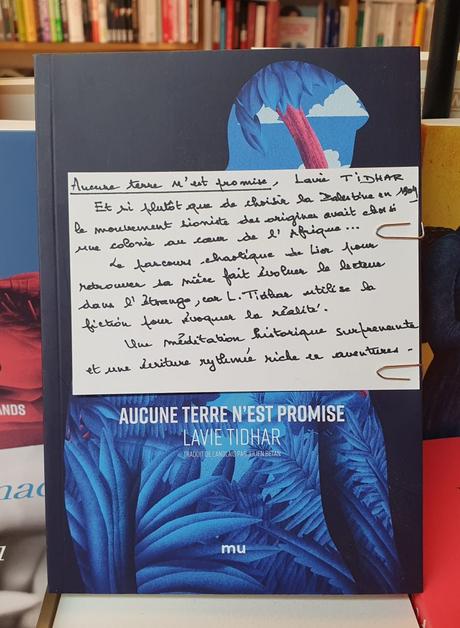 Aucune terre n'est promise, Lavie TIDHAR
Et si plutôt que de choisir la Palestine en 1904
le mouvement sioniste des origines avait choisi
une colonie au cœur de l'Afrique...
Le parcours chaotique de Lior pour
retrouver sa nièce fait évoluer le lecteur
dans l'étrange, car L. Tidhar utilise la
fiction pour évoquer la réalité.
Une méditation historique surprenante
et une écriture rythmée riche en aventures.
AUCUNE TERRE N'EST PROMISE
LAVIE TIDHAR
TRADUIT DE L'ANGLAIS PAR JULIEN BÉTAN
mu
ANDS